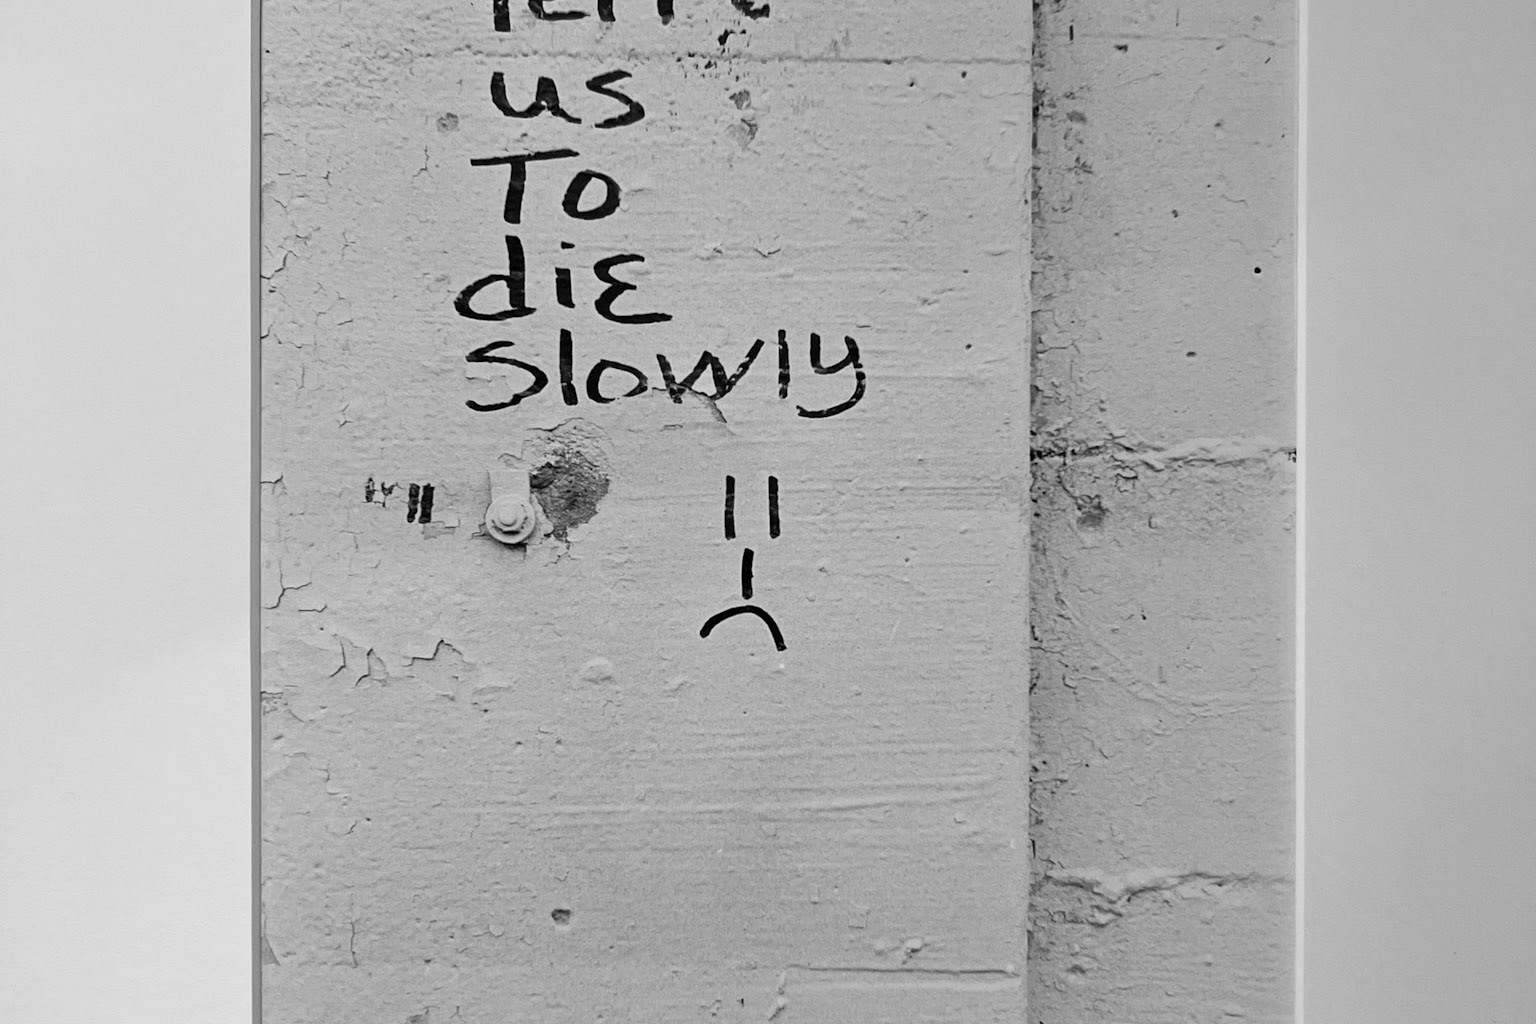 us
To
diE
slowly